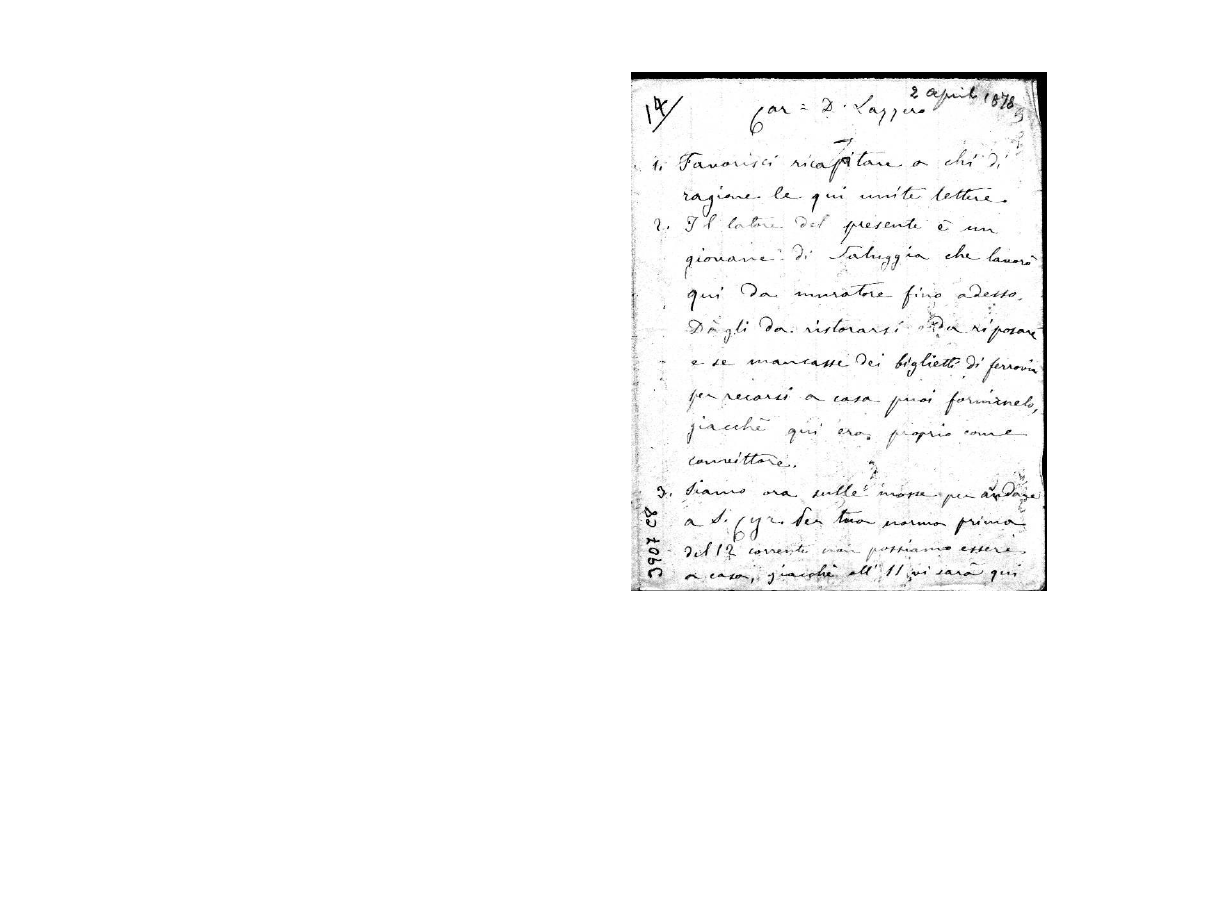 14
2 Aprile 1878
Car = D. Lazzero
1. Favorisci ricapitare a chi di
ragione le qui unite lettere.
2. Il latore del presente è un
giovane di Saluggia che lavorò
qui da muratore fino adesso.
Dàgli da ristorarsi da riposare
e se mancasse dei biglietti di ferrovia
per recarsi a casa puoi fornirnelo,
giacchè qui era proprio come
convittore.
3. Siamo ora sulle mosse per andare
a S. Cyr. Per tua norma prima
del 12 corrente non possiamo essere
a casa, giacchè all' 11 vi sarà qui
3907 C8